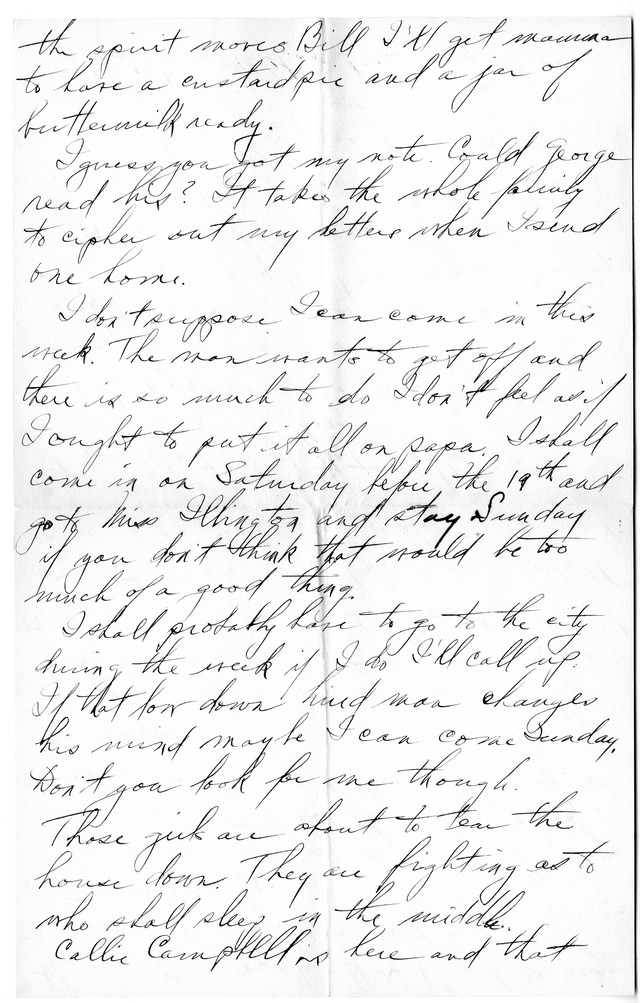 the spirit moves Bill I'll get mamma
to have a custard pie and a jar of
buttermilk ready.
I guess you got my note. Could George
read his? It takes the whole family
to cipher out my letters when I send
one home.
I don't suppose I can come in this
week. The man wants to get off and
there is so much to do I don't feel as if
I ought to put it all on papa. I shall
come in on Saturday before the 19th and
go to Miss Illington and stay Sunday
if you don't think that would be too
much of a good thing.
I shall probably have to go to the city
during the week if I do I'll call up.
If that low down hired man changes
his mind maybe I can come Sunday.
Don't you look for me though.
Those girls are about to tear the
house down. They are fighting as to
who shall sleep in the middle.
Callie Campbell is here and that